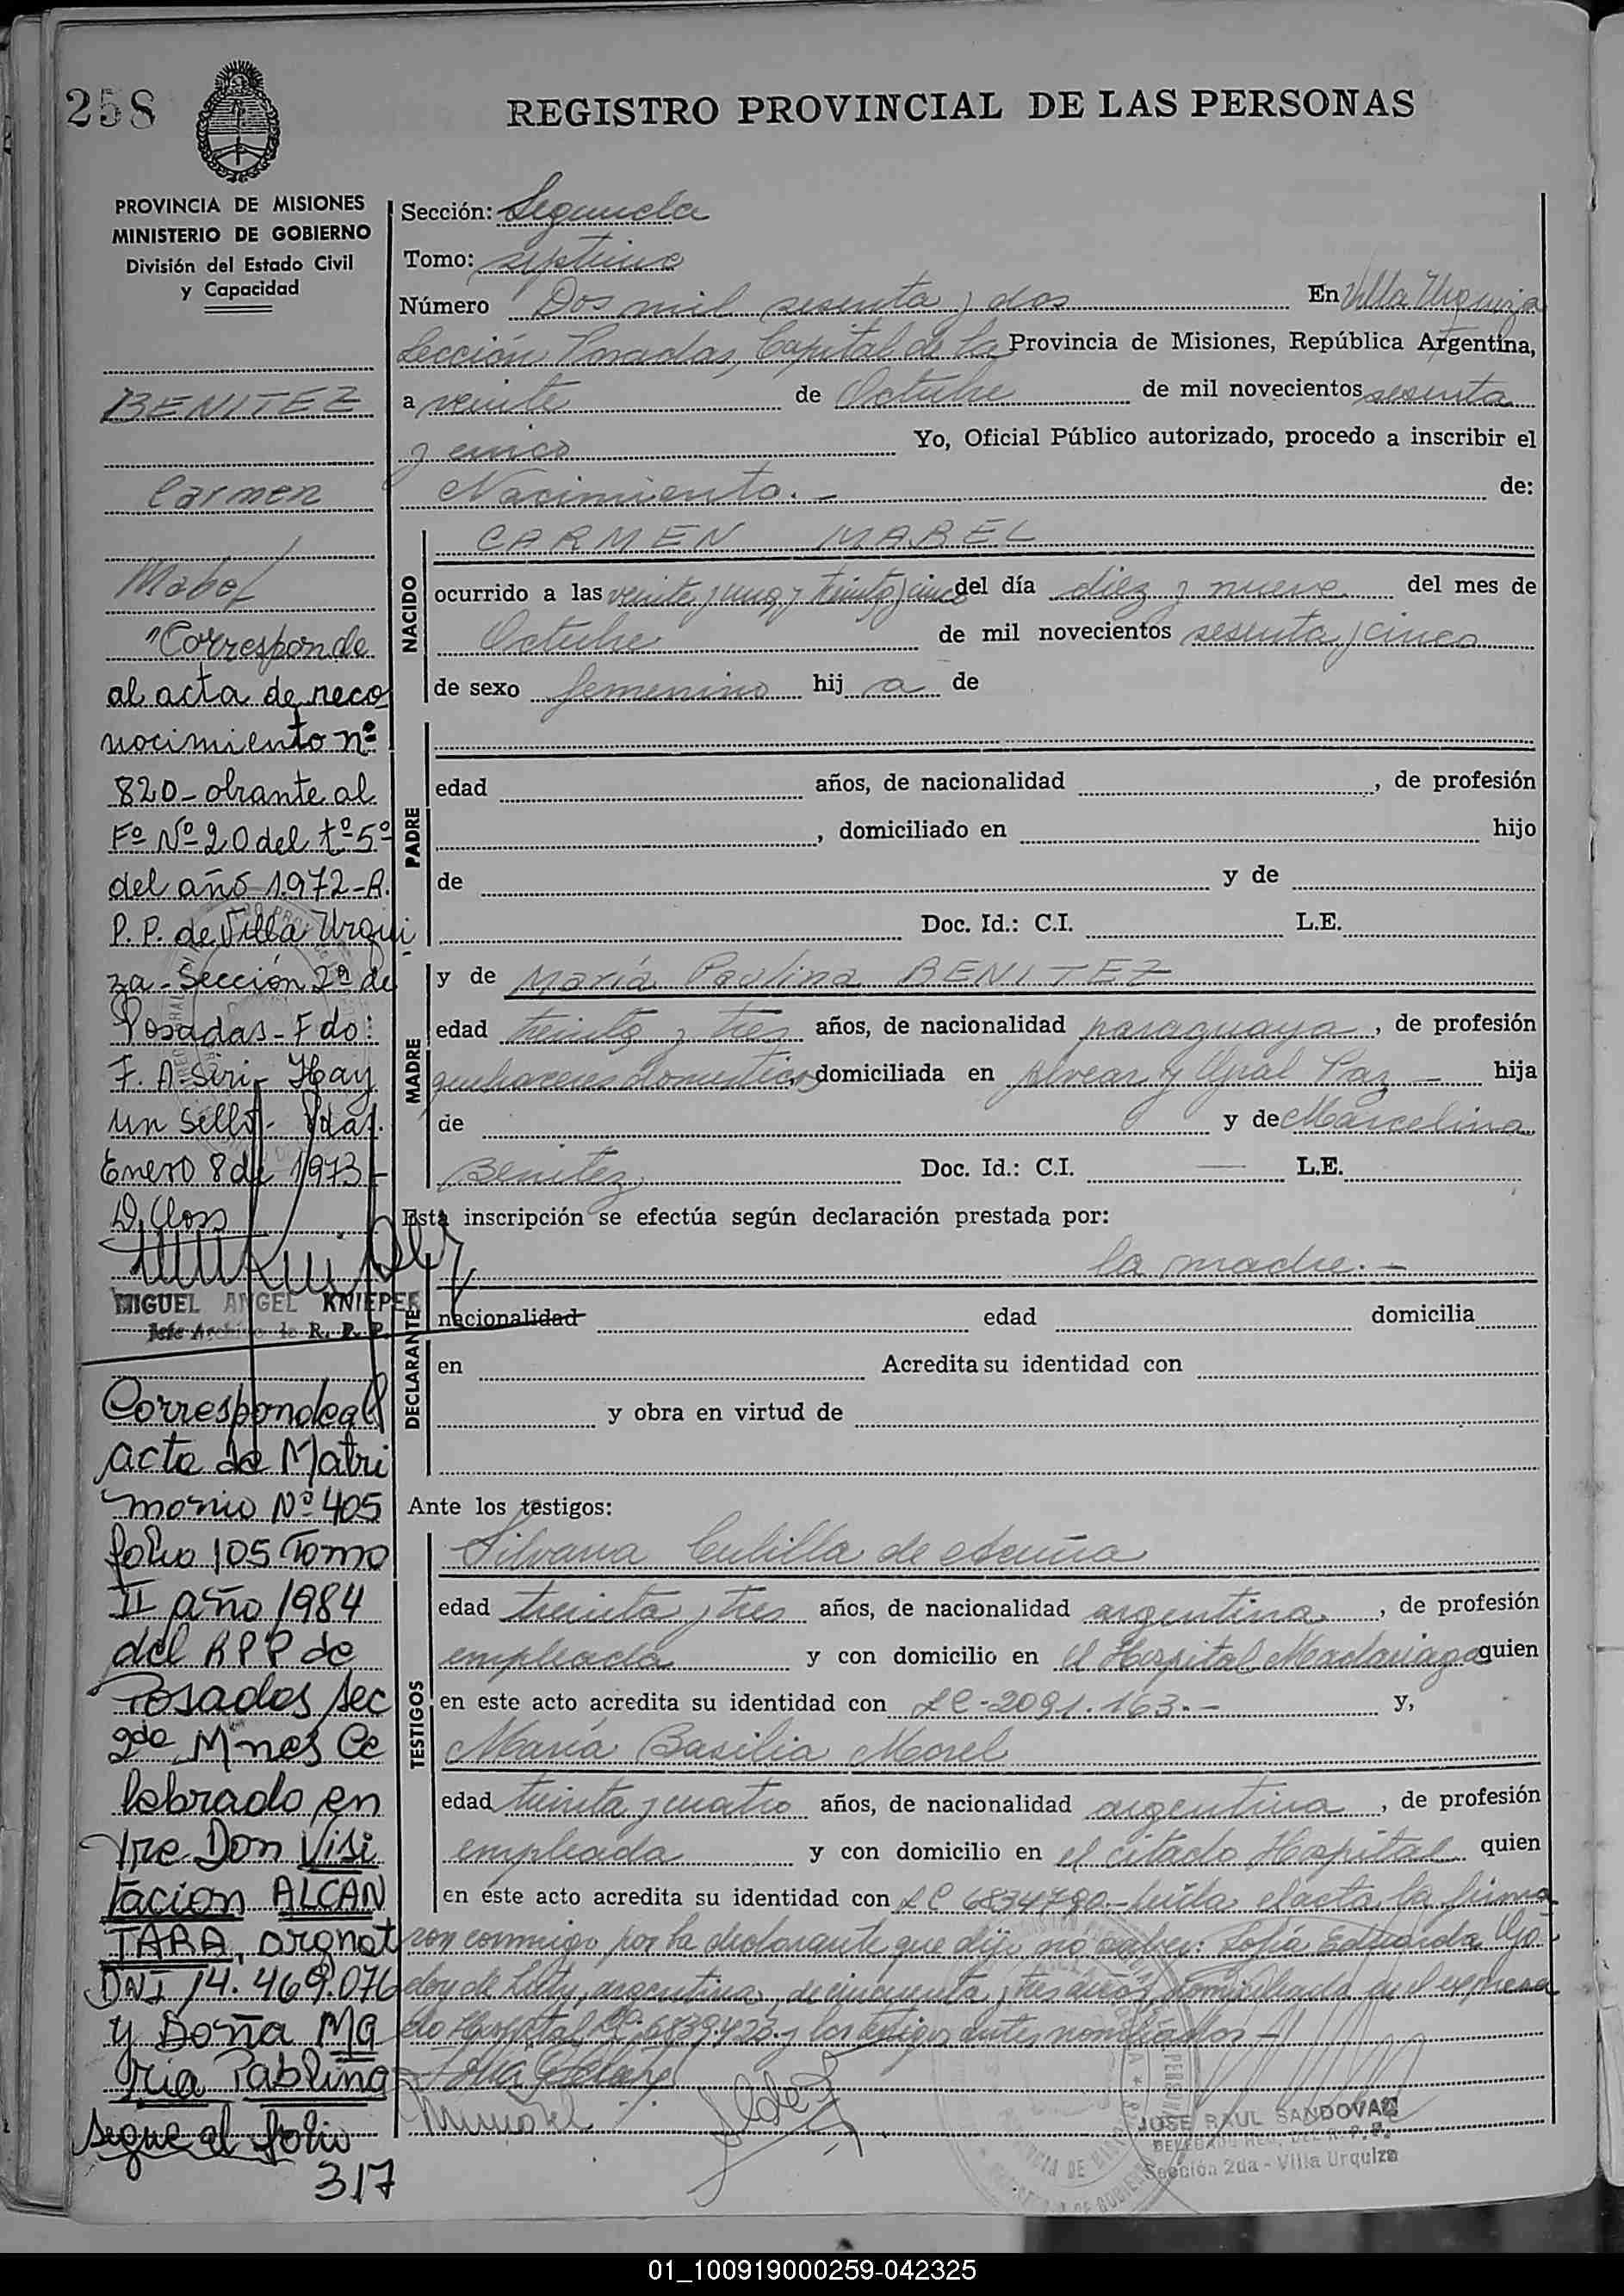 258
REGISTRO PROVINCIAL DE LAS PERSONAS
PROVINCIA DE MISIONES
MINISTERIO DE GOBIERNO
División del Estado Civil
y Capacidad
BENITEZ
Carmen
Mabel
"Corresponde
al acta de reco
nocimiento nº
820 - obrante al
Fº Nº 20 del tº 5º
del año 1972 - R.
P. P. de Villa Urqui
za - Sección 2ª de
Posadas - Fdo:
F. A. Siri - Hay
un sello - Pdas.
Enero 8 de 1973 -
D. Closs
MIGUEL ANGEL KNIEPER
Jefe Archivo de R. P. P.
Corresponde al
acta de Matri
monio Nº 405
folio 105 Tomo
II año 1984
del RPP de
Posadas Sec
2da Mnes Ce
lebrado en
tre Don Visi
tacion ALCAN
TARA, argnot
DNI 14.469.076
y Doña Ma
ria Pablina
segue al folio
317
Sección: Segunda
Tomo: septimo
Número Dos mil sesenta y dos En Villa Urquiza
Sección Posadas, Capital de la Provincia de Misiones, República Argentina,
a veinte de Octubre de mil novecientos sesenta
y cinco Yo, Oficial Público autorizado, procedo a inscribir el
Nacimiento. - de:
NACIDO
CARMEN MABEL
ocurrido a las veinte y una y treinta y cinco del día diez y nueve del mes de
Octubre de mil novecientos sesenta y cinco
de sexo femenino hij a de
PADRE
edad años, de nacionalidad , de profesión
, domiciliado en hijo
de y de
Doc. Id.: C.I. L.E.
MADRE
y de María Paulina BENITEZ
edad treinta y tres años, de nacionalidad paraguaya, de profesión
quehaceres domesticos domiciliada en Alvear y Gral Paz - hija
de y de Marcelina
Benitez Doc. Id.: C.I. — L.E.
Esta inscripción se efectúa según declaración prestada por:
DECLARANTE
la madre. -
nacionalidad edad domicilia
en Acredita su identidad con
y obra en virtud de
Ante los testigos:
TESTIGOS
Silvana Cubilla de Acuña
edad treinta y tres años, de nacionalidad argentina, de profesión
empleada y con domicilio en el Hospital Madariaga quien
en este acto acredita su identidad con LC-2091.163.- y,
María Basilia Morel
edad treinta y cuatro años, de nacionalidad argentina, de profesión
empleada y con domicilio en el citado Hospital quien
en este acto acredita su identidad con LC 6834790 - leída el acta la firma
ron conmigo por la declarante que dijo no saber: Sofía Eduarda
doy de argentina, de cincuenta y tres años, domiciliada en el expresa
do Hospital LC. 6839.423. y los testigos antes nombrados -
JOSE RAUL SANDOVAL
Sección 2da - Villa Urquiza
01_100919000259-042325